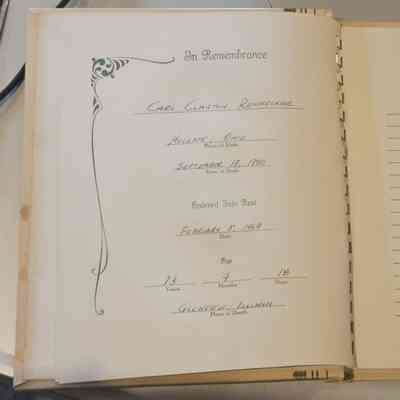 In Remembrance
Carl Clayton
Ohio
Place of Birth
September 18, 1890
Date of Birth
Entered Into Rest
February 5, 1969
Date
Age
78 4 18
Years Months Days
Glenview, Illinois
Place of Death